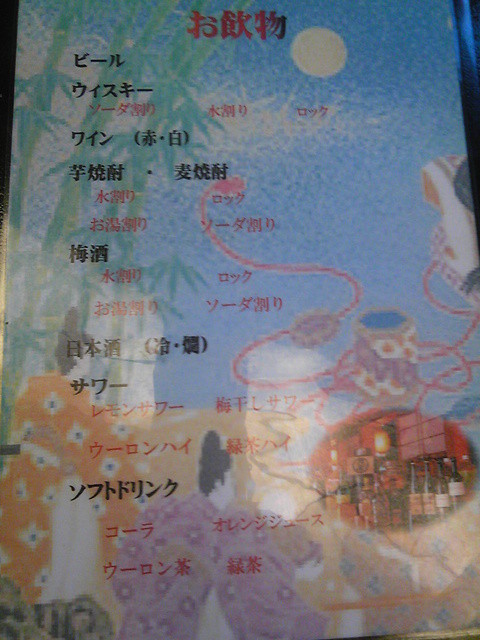 お飲物
ビール
ウィスキー
ソーダ割り 水割り ロック
ワイン (赤・白)
芋焼酎 ・ 麦焼酎
水割り ロック
お湯割り ソーダ割り
梅酒
水割り ロック
お湯割り ソーダ割り
日本酒 (冷・燗)
サワー
レモンサワー 梅干しサワー
ウーロンハイ 緑茶ハイ
ソフトドリンク
コーラ オレンジジュース
ウーロン茶 緑茶